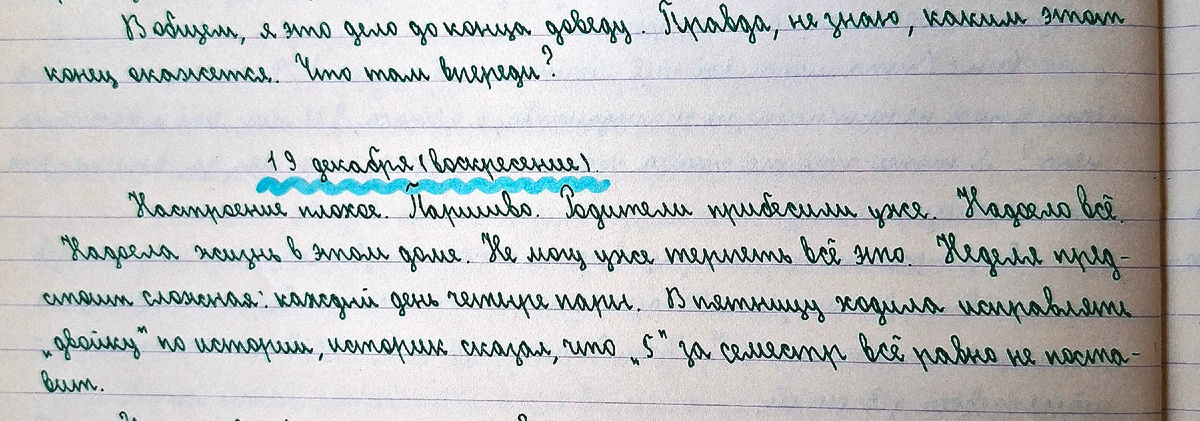 В общем, я это дело до конца доведу. Правда, не знаю, каким этот
конец окажется. Что там впереди?
19 декабря (воскресение).
Настроение плохое. Паршиво. Родители прибесили уже. Надоело всё.
Надоела жизнь в этом доме. Не могу уже терпеть всё это. Неделя пред-
стоит сложная: каждый день четыре пары. В пятницу ходила исправлять
„двойку" по истории, историк сказал, что „5" за семестр всё равно не поста-
вит.